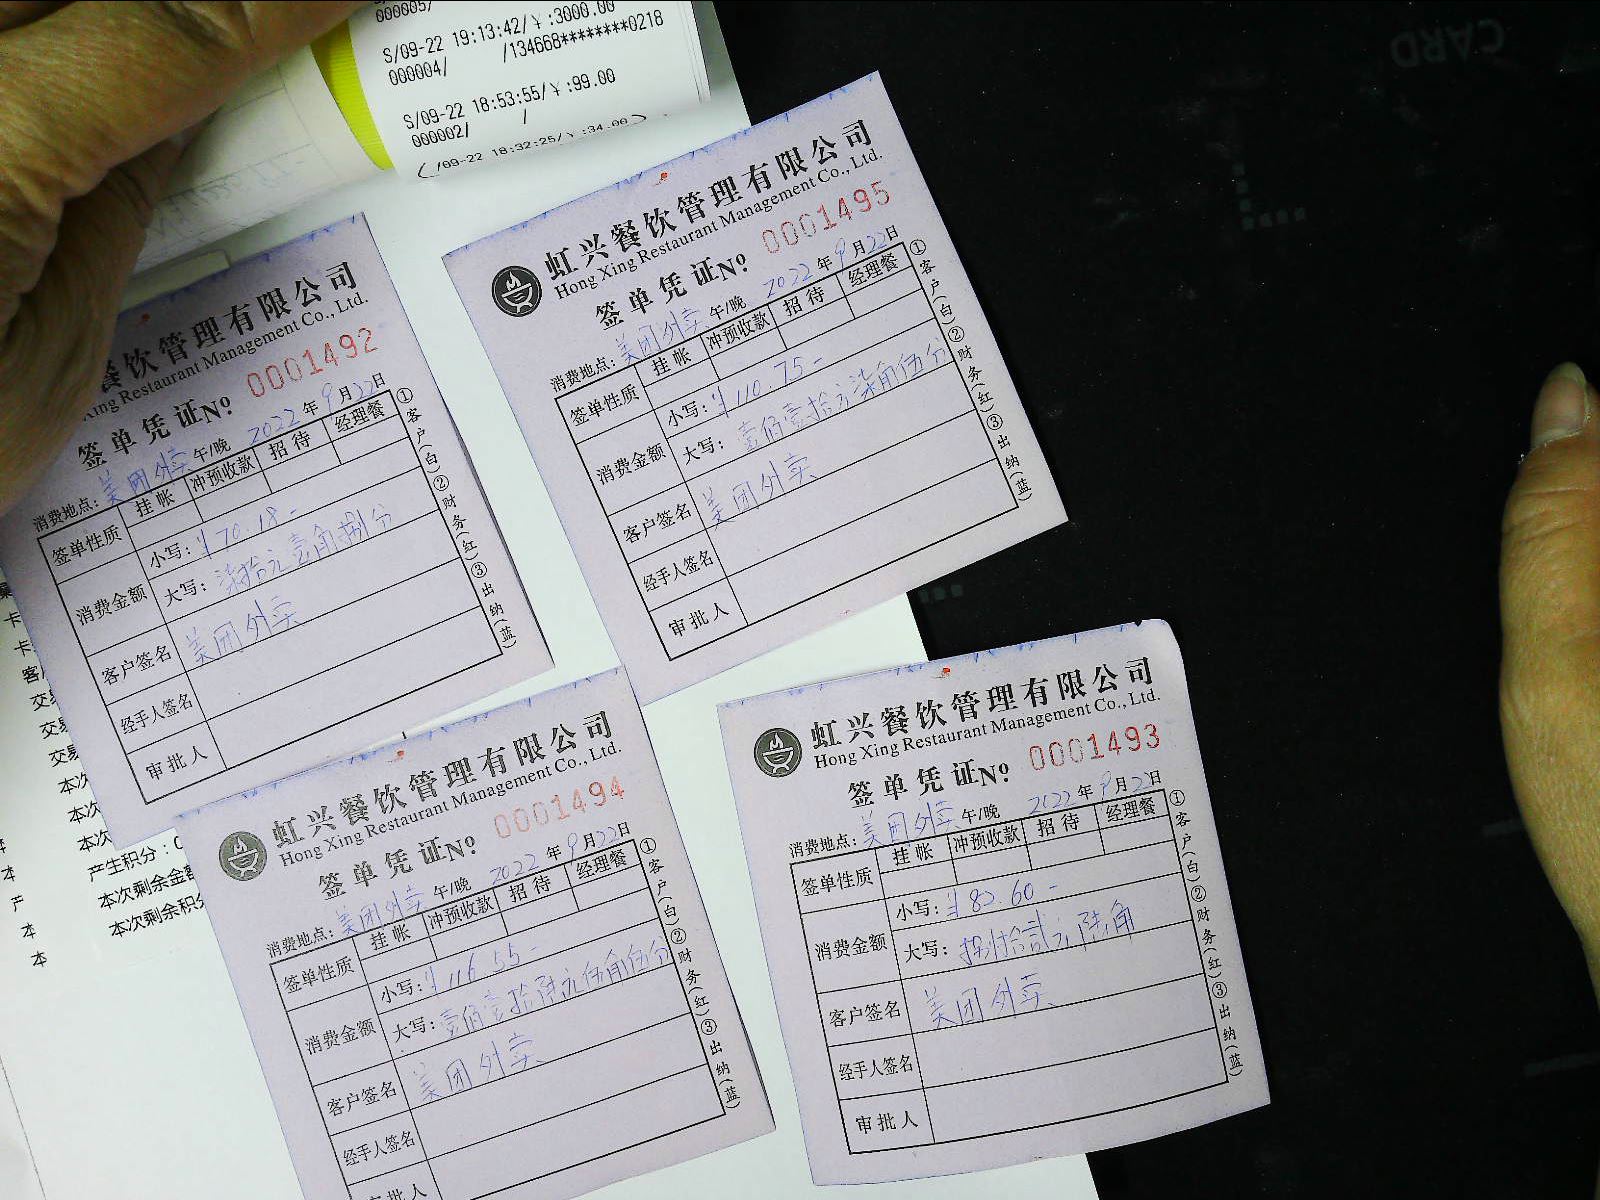 000005/
S/09-22 19:13:42/¥:3000.00
000004/ /134668********0218
S/09-22 18:53:55/¥:99.00
000002/ /
/09-22 18:32:25/¥:34.00
餐饮管理有限公司
Xing Restaurant Management Co., Ltd.
签单凭证№ 0001492
2022年9月22日
消费地点:美团外卖 午/晚
签单性质 挂帐 冲预收款 招待 经理餐
消费金额 小写:¥70.18-
大写:柒拾元壹角捌分
客户签名 美团外卖
经手人签名
审批人
①客户(白)②财务(红)③出纳(蓝)
虹兴餐饮管理有限公司
Hong Xing Restaurant Management Co., Ltd.
签单凭证№ 0001495
2022年9月22日
消费地点:美团外卖 午/晚
签单性质 挂帐 冲预收款 招待 经理餐
消费金额 小写:¥110.75-
大写:壹佰壹拾元柒角伍分
客户签名 美团外卖
经手人签名
审批人
①客户(白)②财务(红)③出纳(蓝)
虹兴餐饮管理有限公司
Hong Xing Restaurant Management Co., Ltd.
签单凭证№ 0001494
2022年9月22日
消费地点:美团外卖 午/晚
签单性质 挂帐 冲预收款 招待 经理餐
消费金额 小写:¥116.55-
大写:壹佰壹拾陆元伍角伍分
客户签名 美团外卖
经手人签名
审批人
①客户(白)②财务(红)③出纳(蓝)
虹兴餐饮管理有限公司
Hong Xing Restaurant Management Co., Ltd.
签单凭证№ 0001493
2022年9月22日
消费地点:美团外卖 午/晚
签单性质 挂帐 冲预收款 招待 经理餐
消费金额 小写:¥82.60-
大写:捌拾贰元陆角
客户签名 美团外卖
经手人签名
审批人
①客户(白)②财务(红)③出纳(蓝)
卡
卡
客
交易
交易
交易
本次
本次
本次
产生积分:0
本次剩余金额
本次剩余积分
本
产
本
本
CARD